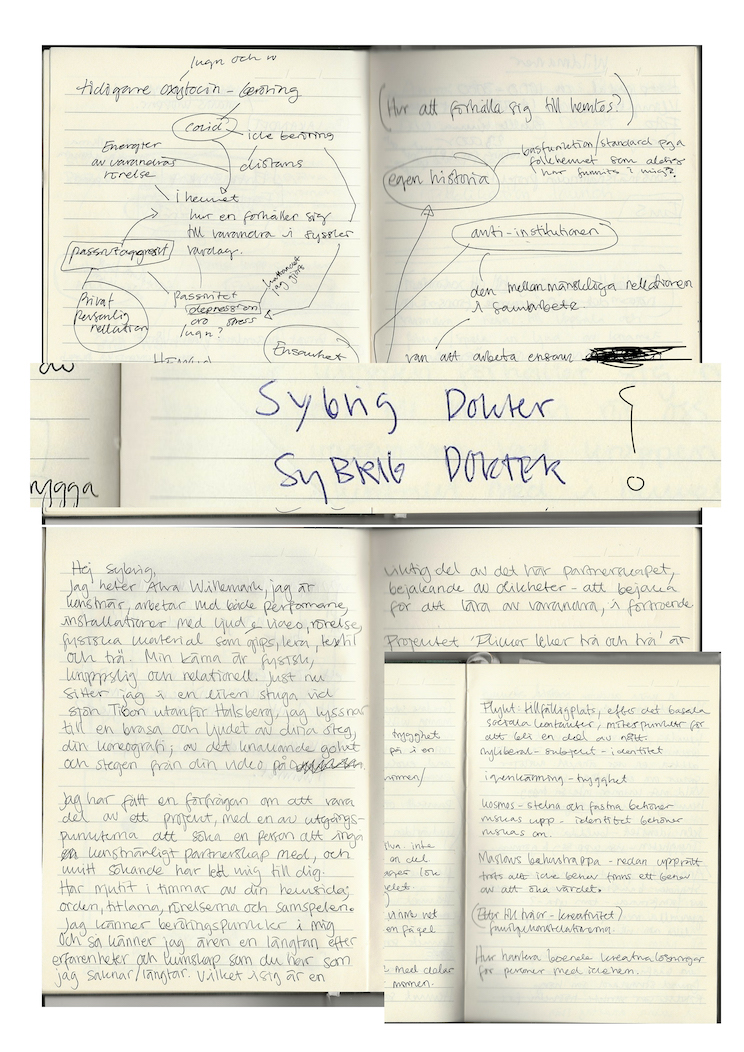 lugn och
tidigare oxytocin - beröring
covid?
icke beröring
Energier
av varandras
rörelse
distans
i hemmet
hur en förhåller sig
till varandra i sysslor
vardag.
passivaggresivt
Privat
personlig
rellation
passivitet
depression
oro stress
lugn?
jag gjort
Ensamhet
(Hur att förhålla sig till hemlös?)
egen historia
basfunktion/standard pga
folkhemmet som aldrig
har funnits i mig?
anti-institutionen
den mellanmänskliga rellationen
i samarbete.
van att arbeta ensam
rygga
Sybrig Dokter
SyBRIG DOKTER
Hej Sybrig,
Jag heter Alva Willemark, jag är
konstnär, arbetar med både performance,
installationer med ljud & video, rörelse,
fysiska material som gips, lera, textil
och trä. Min kärna är fysisk,
kroppslig och relationell. Just nu
sitter jag i en liten stuga vid
sjön Tisaren utanför Hallsberg, jag lyssnar
till en brasa och ljudet av dina steg,
din koreografi; av det knakande golvet
och stegen från din video på
Jag har fått en förfrågan om att vara
del av ett projekt, med en av utgångs-
punkterna att söka en person att ingå
konstnärligt partnerskap med, och
mitt sökande har lett mig till dig.
Har njutit i timmar av din hemsida;
orden, titlarna, rörelserna och samspelen.
Jag känner beröringspunkter i mig
och så känner jag även en längtan efter
erfarenheter och kunskap som du bär som
jag saknar/längtar. Vilket i sig är en
viktig del av det här partnerskapet,
bejakande av olikheter - att bejaka
för att lära av varandra, i förtroende
Projektet 'Flickor leker trä och trä' är
trygghet
på i en
normen/
inte
en del
med delar
normen.
Flykt: tillfälligplats, efter det basala
sociala kontakter, mötespunkter för
att bli en del av nått.
nyliberal - subjekt - identitet
igenkänning - trygghet
kosmos - stelna och fastna behöver
ruskas upp - identitet behöver
ruskas om.
Maslows behovstrappa - redan uppnått
trots att icke behov finns ett behov
av att öka värdet.
familjekonstellationerna.
Hur hantera boende kreativa lösningar
för personer med icke hem.